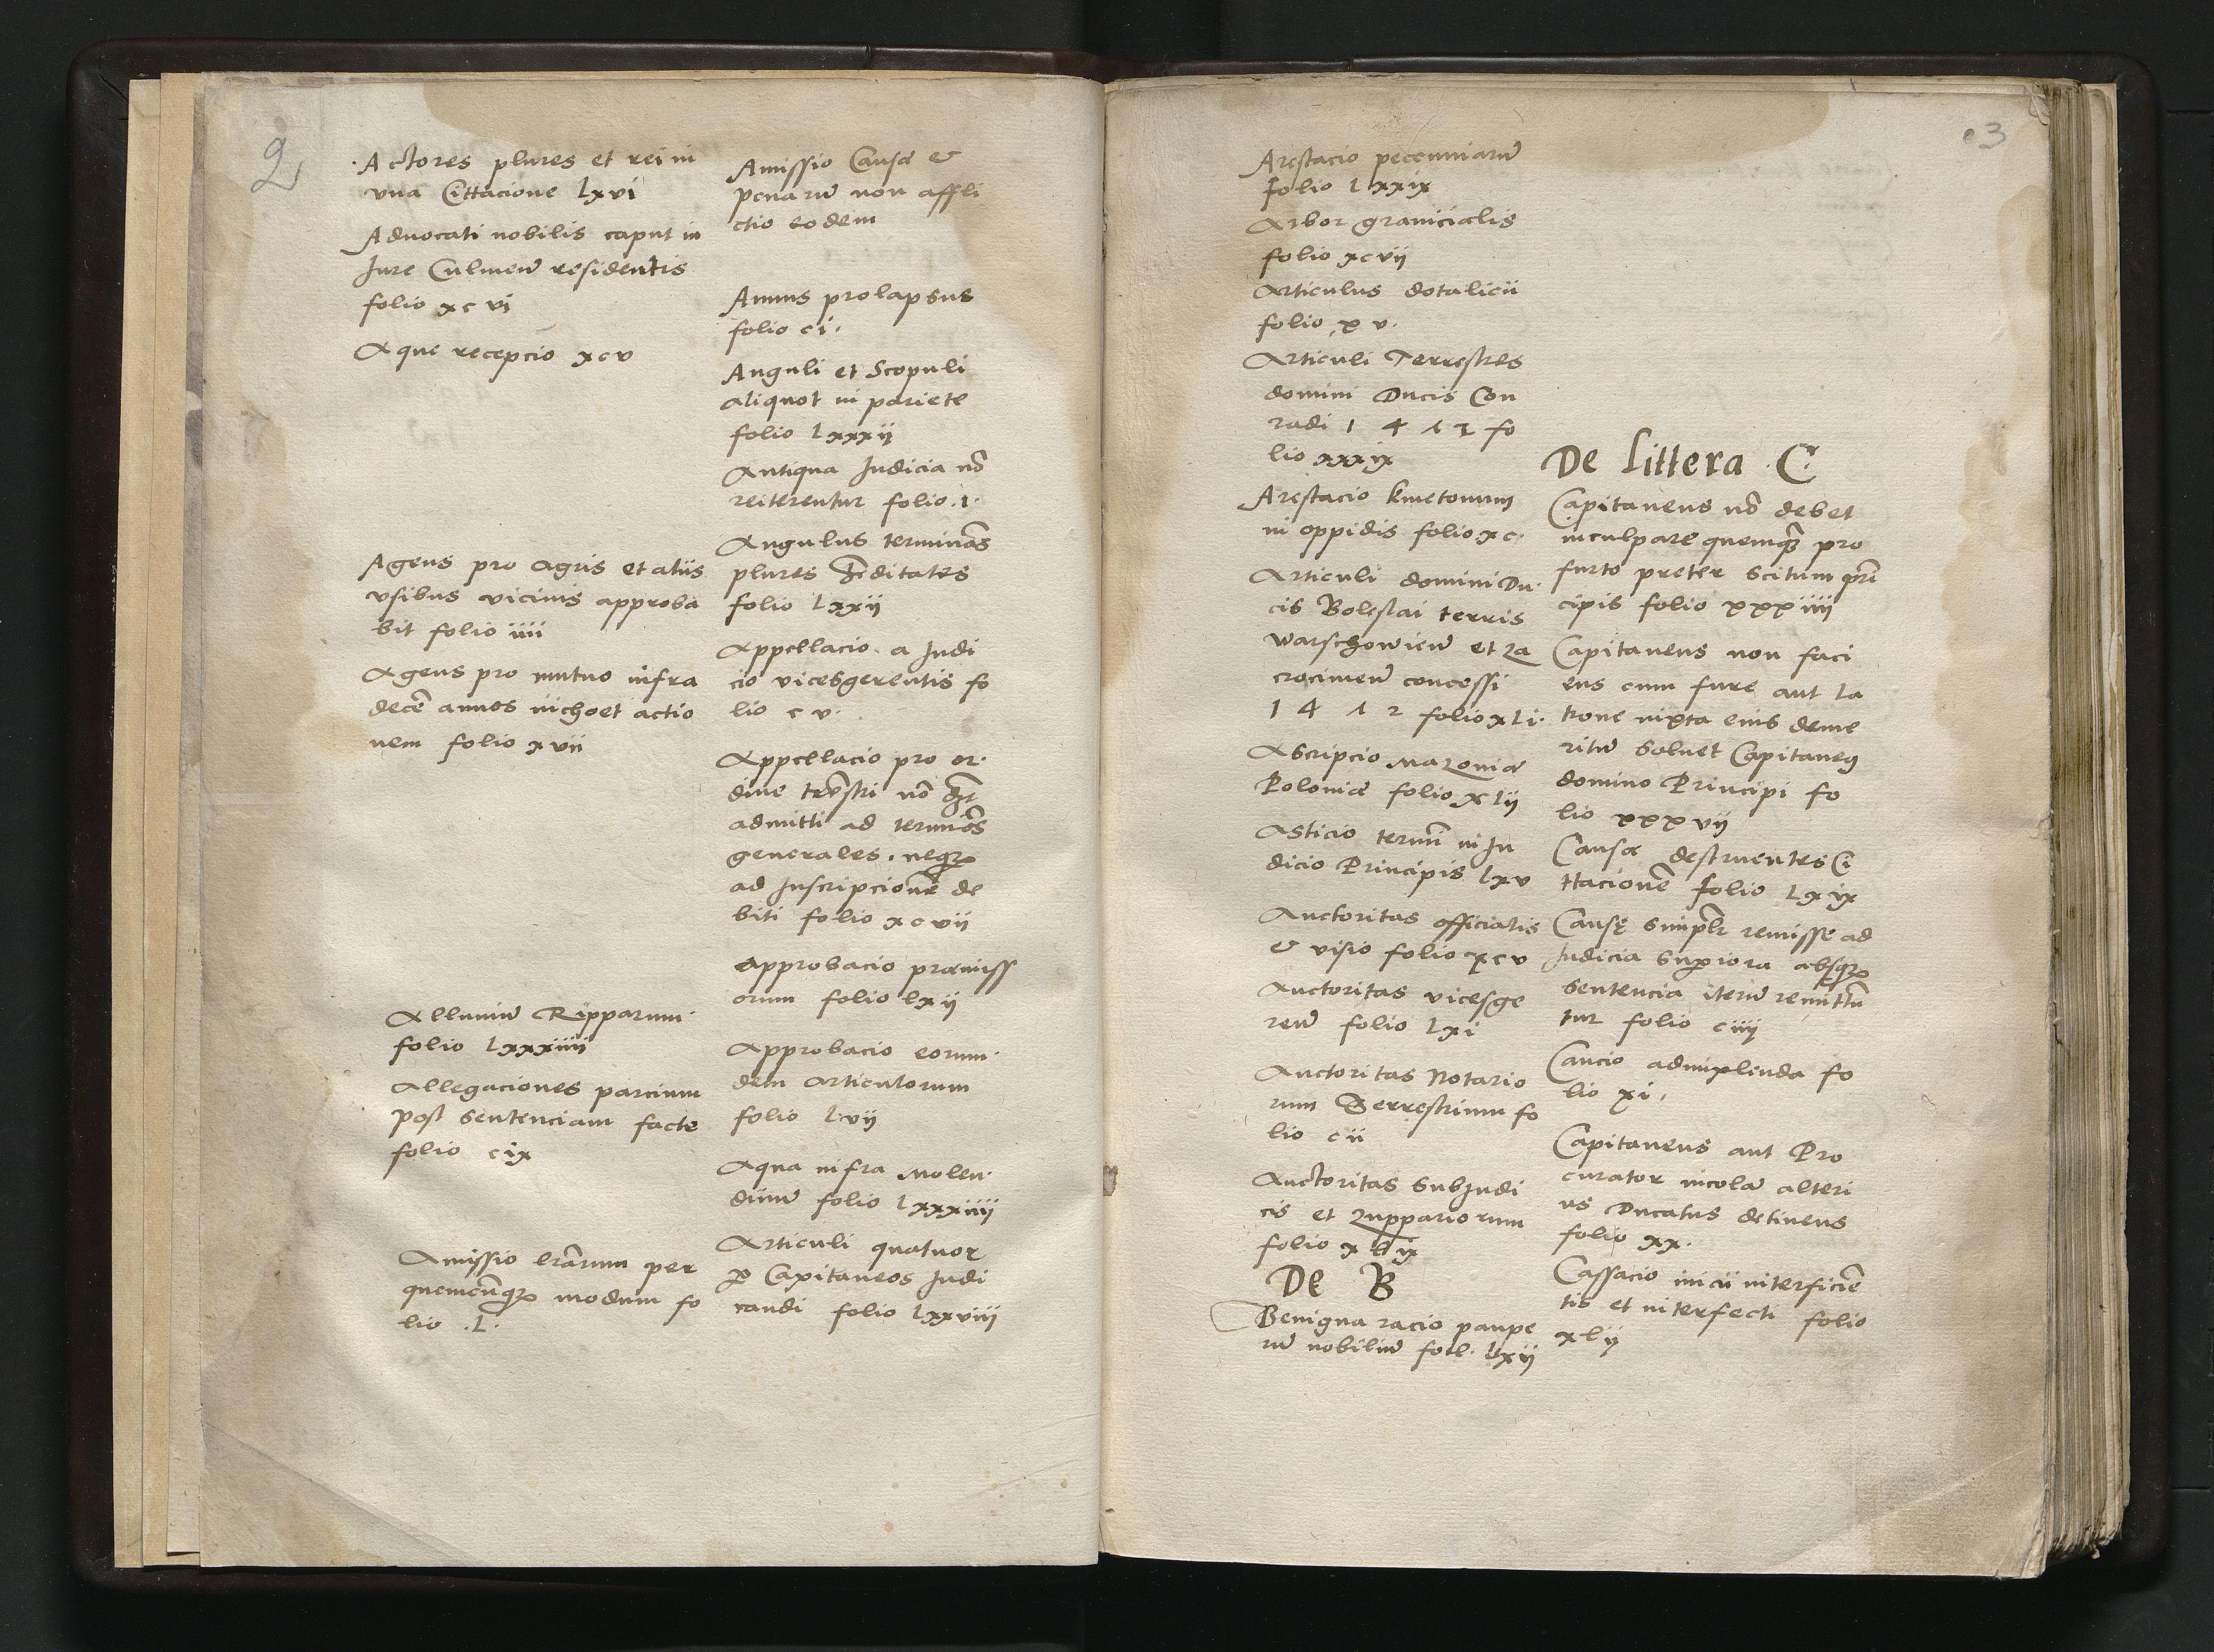 2
Actores plures et rei in
vna Cittacione lxvi
Aduocati nobilis caput in
Jure Culmen̄ residentis
folio xcvi
Aque recepcio xcv
Agens pro agris et aliis
vsibus vicinis approba
bit folio iiii
Agens pro mutuo infra
decē annos
nem folio xvii
Alluuiū Ripparum
folio lxxxiiii
Allegaciones parcium
post sentenciam facte
folio cix
Amissio lrārum per
quemcūqȝ modum fo
lio .l.
Amissio Causæ &
penarū non affli
ctio eodem
Annus prolapsus
folio ci.
Anguli et Scopuli
aliquot in pariete
folio lxxxij
Antiqua Judicia nō
reiterentur folio .i.
Angulus terminās
plures
folio lxxij
Appellacio a Judi
cio vicesgerentis fo
lio cv.
Appellacio pro or
dine nō
admitti ad terminōs
generales. neqȝ
ad Inscripcionē de
biti folio xcvij
Approbacio præmiss
orum folio lxij
Approbacio eorum
dem articulorum
folio lvij
Aqua infra Molen
dinū folio lxxxiiij
Articuli quatuor
ꝑ Capitaneos Judi
candi folio lxxviij
3
Arestacio peccuniarū
folio lxxix
Arbor granicialis
folio xcvij
Articulus dotalicii
folio xv.
Articuli Terrestres
domini Ducis Con
radi 1 4 1 1 fo
lio xxxix
Arestacio kmetonum
in oppidis folio xc.
Articuli domini Du
cis Boleslai terris
warschowien̄ et za
crocimen̄ concessi
1 4 1 2 folio xli.
Ascripcio Mazoniæ
Poloniæ folio xlij
Asticio in Ju
dicio Principis lxv
Auctoritas officialis
& visio folio xcv
Auctoritas vicesge
ren̄ folio lxi
Auctoritas Notario
rum Terrestrium fo
lio cii
Auctoritas subJudi
cis et zuppariorum
folio xlix
De B
Benigna racio paupe
rū nobiliū fol. lxij
De littera C
Capitaneus nō debet
inculpare quemqȝ pro
furto preter scitum prī
cipis folio xxxiiij
Capitaneus non faci
ens cum fure aut la
trone iuxta eius deme
ritū soluet Capitaneꝰ
domino Principi fo
lio xxxvij
Causæ destruentes Ci
ttacionē folio lxix
Causę simplr̄ remisse ad
Judicia supiora absqȝ
sentencia iterū remittū
tur folio ciiij
Caucio adimplenda fo
lio xi.
Capitaneus aut Pro
curator incolā alteri
us Ducatus detinens
folio xx.
Cassacio interficiē
tis et interfecti folio
xlij